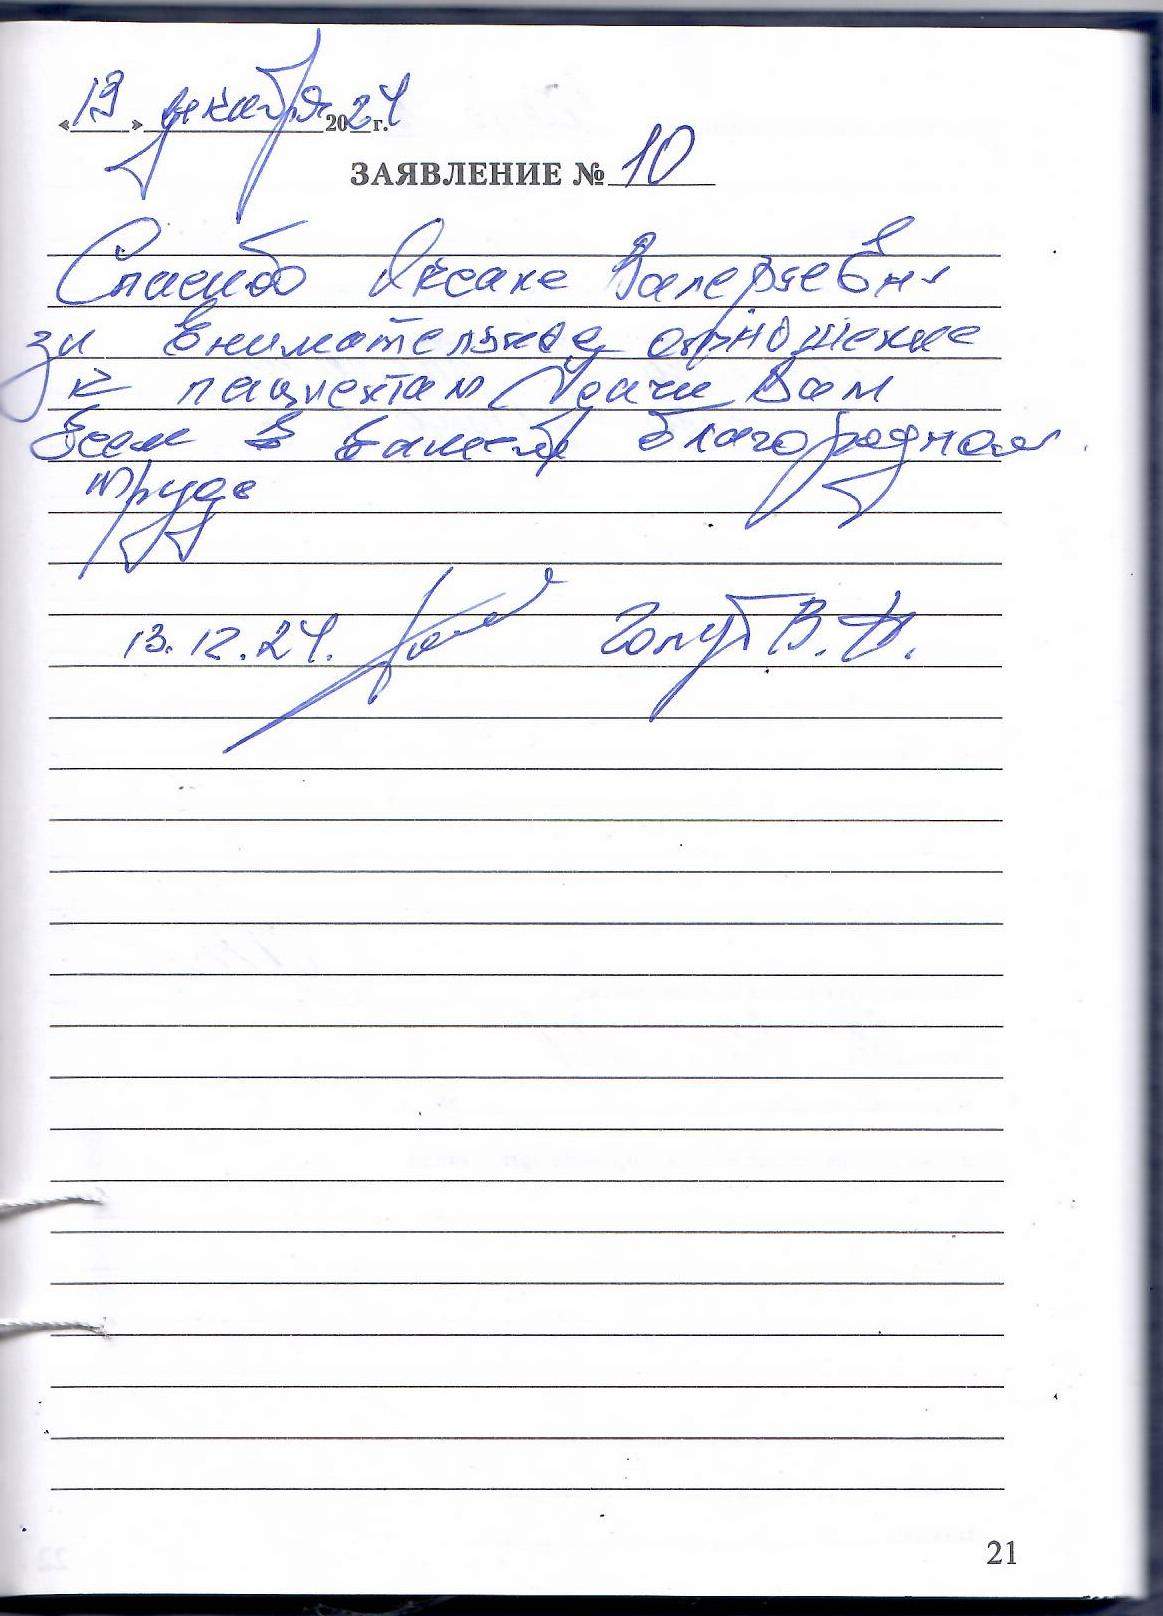 «13» декабря 2024 г.
ЗАЯВЛЕНИЕ № 10
Спасибо Оксане Валерьевне
за внимательное отношение
к пациентам Удачи Вам
Всем в вашем благородном
труде
13.12.24. Голуб В.
21